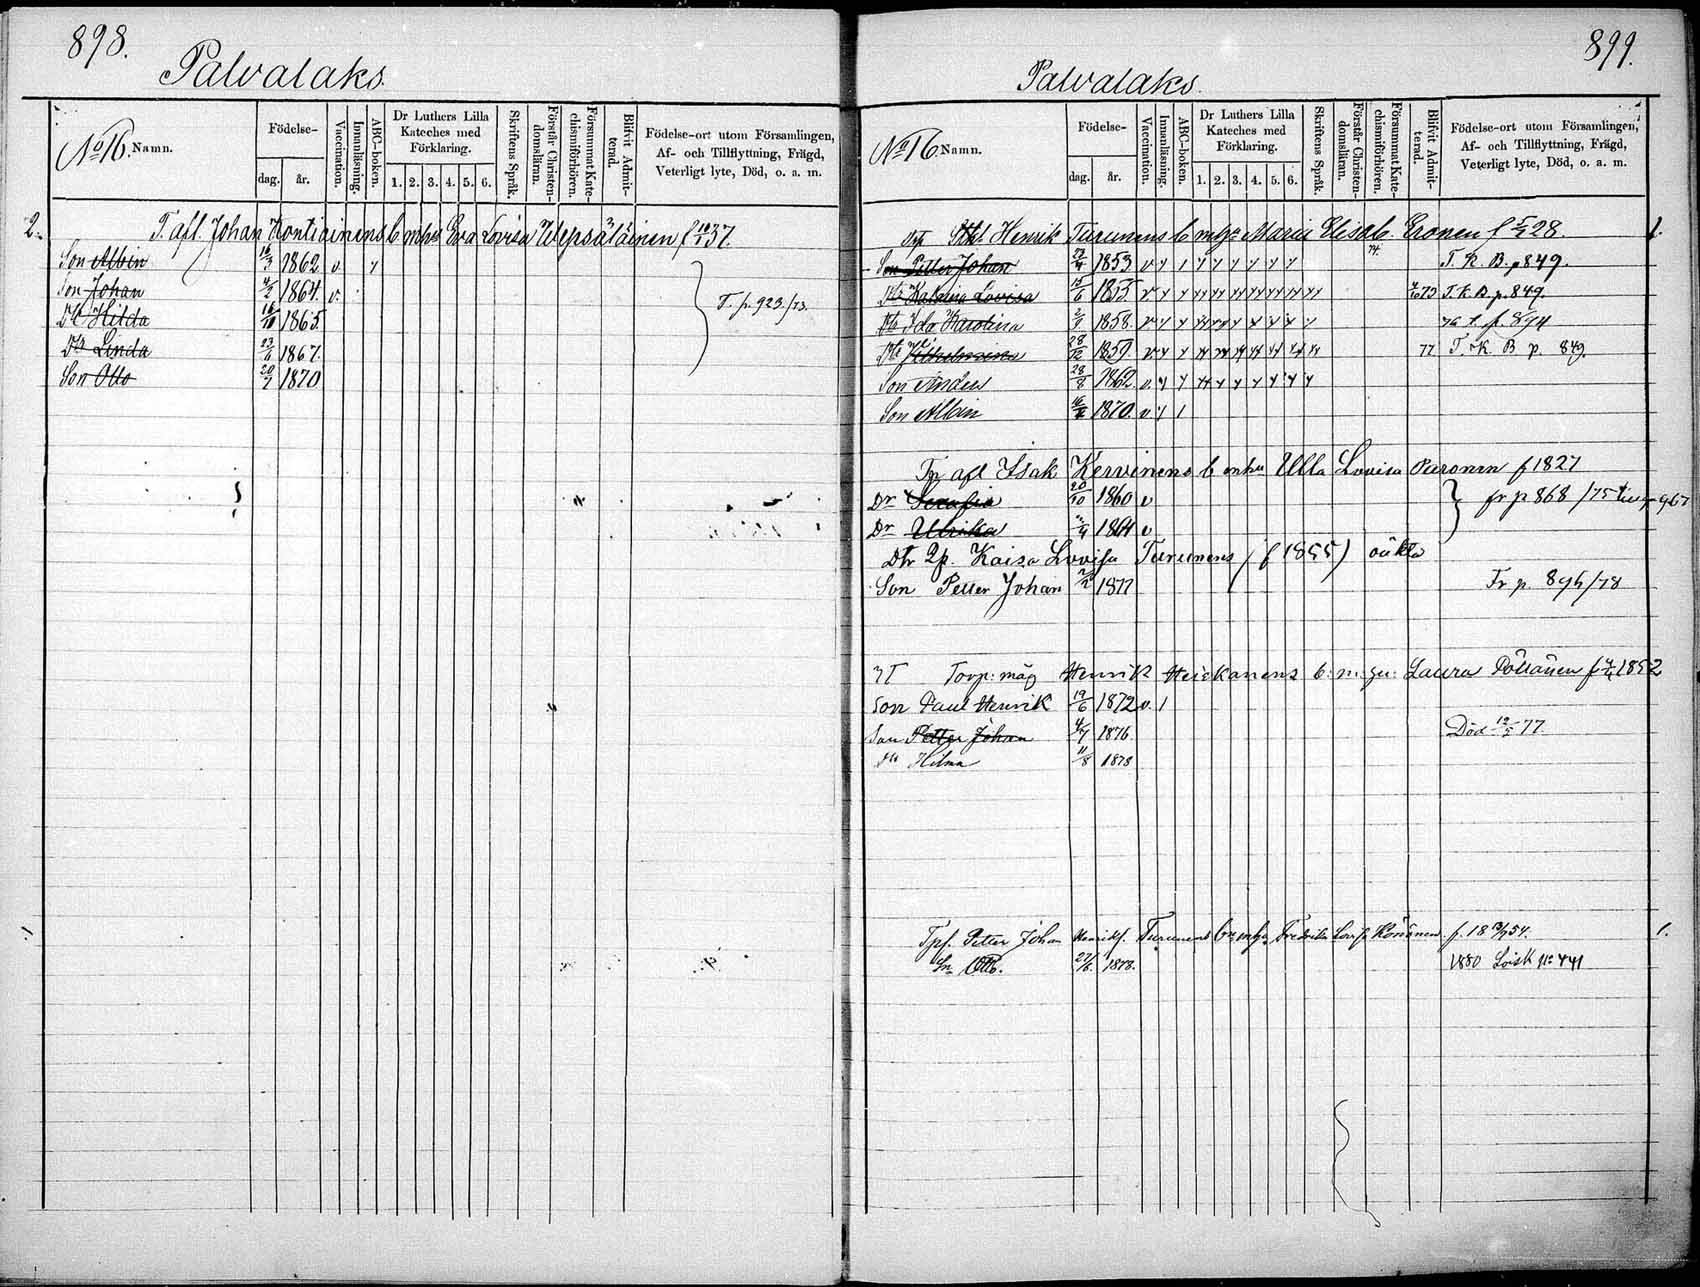 898.
Palvalaks.
No 16. Namn.
Födelse-
dag. år.
Vaccination.
Innanläsning.
ABC-boken.
Dr Luthers Lilla Kateches med Förklaring.
1. 2. 3. 4. 5. 6.
Skriftens Språk.
Förstår Christendomsläran.
Försummat Katechismiförhören.
Blifvit Admitterad.
Födelse-ort utom Församlingen, Af- och Tillflyttning, Frägd, Veterligt lyte, Död, o. a. m.
2. T. afl. Johan Kontiainens b mhu Eva Lovisa Wepsäläinen f 37.
Son Albin 1862 v
Son Johan 1864. v.
Dtr Hilda 16/10 1865. T. p. 923/73.
Dtr Linda 23/6 1867.
Son Otto 20/7 1870
899.
Palvalaks.
No 16. Namn.
Födelse-
dag. år.
Vaccination.
Innanläsning.
ABC-boken.
Dr Luthers Lilla Kateches med Förklaring.
1. 2. 3. 4. 5. 6.
Skriftens Språk.
Förstår Christendomsläran.
Försummat Katechismiförhören.
Blifvit Admitterad.
Födelse-ort utom Församlingen, Af- och Tillflyttning, Frägd, Veterligt lyte, Död, o. a. m.
Henrik Turunens b mhu Maria Elisab. Eronen f 28. 1.
Son Petter Johan 1853 v 74. T. K. B. p 849.
Dtr Katrina Lovisa 1855 v 73 T. K. B. p. 849.
Dtr Ida Karolina 1858. v 76 t. p. 894
Dtr Wilhelmina 28/12 1859. v 77 T. K. B p. 849.
Son Anders 28/8 1862 v.
Son Albin 1870. v
Tp afl Isak Kervinens b mhu Ulla Lovisa Paronen f 1827
Dr Serafia 20/10 1860 v fr p 868 /75 967
Dr Ulrika 1864 v
Dtr Kaisa Lovisa Turunens (f 1855) oäkta
Son Petter Johan 1877 Fr p. 896/78
Torp: måg Henrik Heickanens b: m: hu: Laura Pöllänen f 1852
Son Paul Henrik 19/6 1872 v. 1
Son Petter Johan 4/7 1876. Död 12/5 77.
Dtr Hilma 11/8 1878
Tpf. Petter Johan Henrikss. Turunens b m hu Fredrika Lovisa Könönen f. 18 54. 1.
Sn Otto. 27/8. 1878. 1880 Lösk No 441